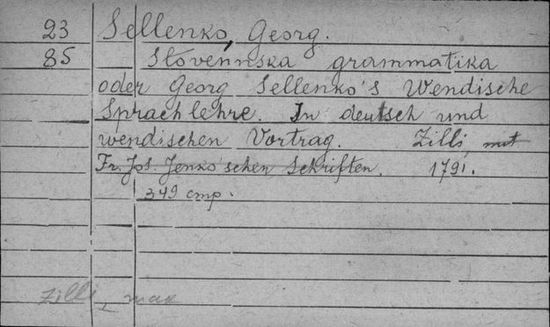 23 Sellenko, Georg.
85 Slovennska grammatika
oder Georg Sellenko's Wendische
Sprachlehre. In deutsch und
wendischen Vortrag. Zilli, mit
Fr. Jos. Jenko'schen Schriften. 1791.
349 cmp.
Zilli,